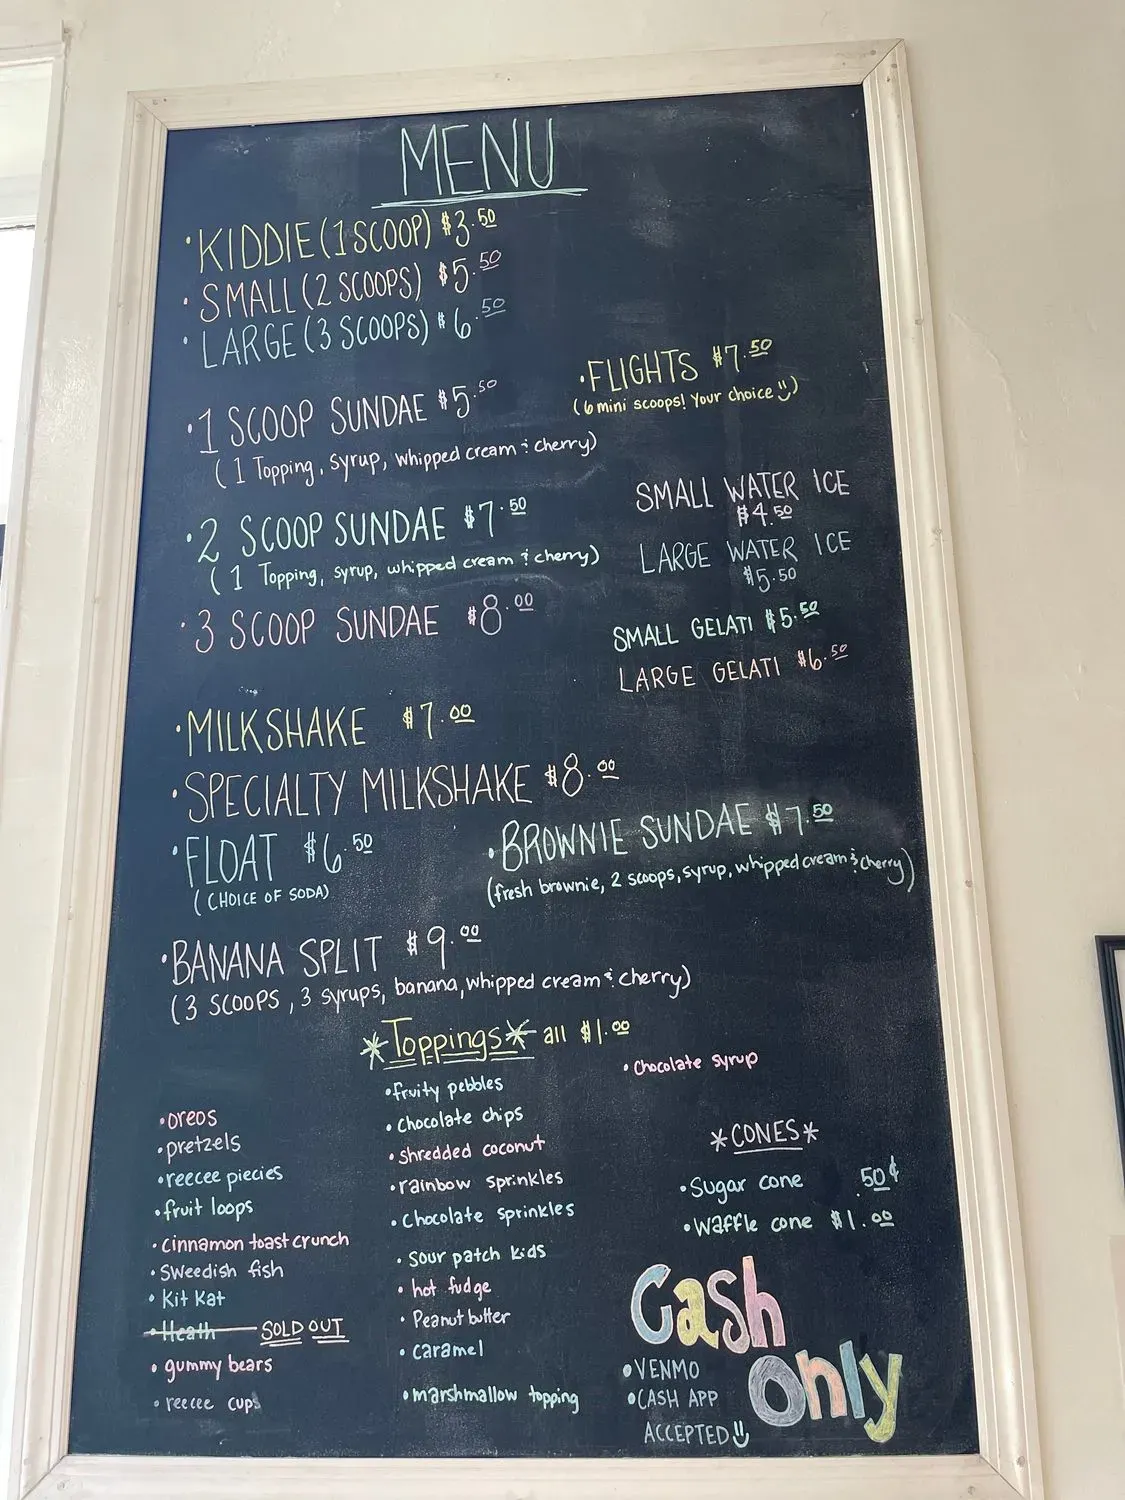 MENU
•KIDDIE (1 SCOOP) $3.50
•SMALL (2 SCOOPS) $5.50
•LARGE (3 SCOOPS) $6.50
•FLIGHTS $7.50
(6 mini scoops! Your choice)
•1 SCOOP SUNDAE $5.50
(1 Topping, syrup, whipped cream & cherry)
•2 SCOOP SUNDAE $7.50
(1 Topping, syrup, whipped cream & cherry)
•3 SCOOP SUNDAE $8.00
SMALL WATER ICE
$4.50
LARGE WATER ICE
$5.50
SMALL GELATI $5.50
LARGE GELATI $6.50
•MILKSHAKE $7.00
•SPECIALTY MILKSHAKE $8.00
•FLOAT $6.50
(CHOICE OF SODA)
•BROWNIE SUNDAE $7.50
(fresh brownie, 2 scoops, syrup, whipped cream & cherry)
•BANANA SPLIT $9.00
(3 SCOOPS, 3 syrups, banana, whipped cream & cherry)
*Toppings* all $1.00
•oreos
•pretzels
•reecee piecies
•fruit loops
•cinnamon toast crunch
•Sweedish fish
•Kit Kat
•Heath SOLD OUT
•gummy bears
•reecee cups
•fruity pebbles
•chocolate chips
•shredded coconut
•rainbow sprinkles
•chocolate sprinkles
•sour patch kids
•hot fudge
•Peanut butter
•caramel
•marshmallow topping
•chocolate syrup
*CONES*
•Sugar cone .50¢
•waffle cone $1.00
Cash
Only
•VENMO
•CASH APP
ACCEPTED